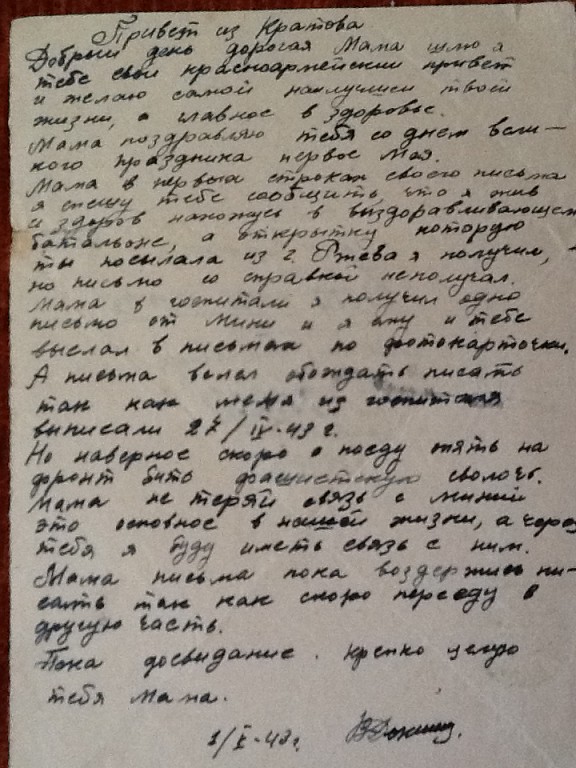 Привет из Кратова
Добрый день дорогая Мама шлю я
тебе свой красноармейский привет
и желаю самой наилучшей твоей
жизни, а главное в здоровье.
Мама поздравляю тебя со днем вели-
кого праздника первое Мая.
Мама в первых строках своего письма
я спешу тебе сообщить, что я жив
и здоров нахожусь в выздоравливающем
батальоне, а открытку которую
ты посылала из г. Ржева я получил,
но письмо со справкой неполучал.
Мама в госпитали я получил одно
письмо от Мини и я ему и тебе
выслал в письмах по фотокарточки.
А письма велел обождать писать
так как меня из госпиталя
выписали 27/IV-43 г.
Но наверное скоро поеду опять на
фронт бить фашистскую сволочь.
Мама не теряй связь с Миний
это основное в нашей жизни, а через
тебя я буду иметь связь с ним.
Мама письма пока воздержись пи-
сать так как скоро перееду в
другую часть.
Пока досвидание. Крепко целую
тебя Мама.
1/V-43 г.